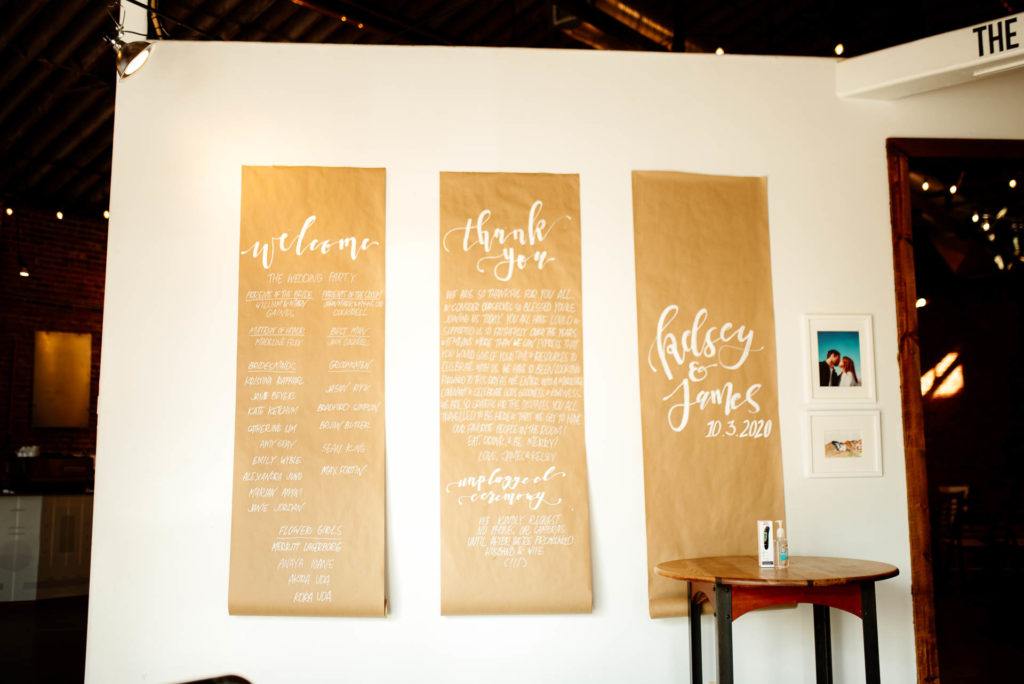 THE
welcome
THE WEDDING PARTY
PARENTS OF THE BRIDE
PARENTS OF THE GROOM
WILLIAM & MARY
GAINES
COCKRELL
MATRON OF HONOR
BEST MAN
MADELINE FOLEY
BRIDESMAIDS
GROOMSMEN
KRISTINA RAPHAEL
JANIE BEYERS
JASON RYU
KATE KETCHUM
BRADFORD SIMPSON
CATHERINE LIM
BRIAN BUTLER
AMY GRAY
SEAN KING
EMILY WYBLE
ALEXANDRA JUNG
MAX FORTIN
MARIAN AMON
JANIE JORDAN
FLOWER GIRLS
MERRITT LAGERBORG
ANAYA MANE
AKIRA UDA
KORA UDA
thank
you
WE ARE SO THANKFUL FOR YOU ALL
& CONSIDER OURSELVES SO BLESSED YOU'RE
JOINING US TODAY. YOU ALL HAVE LOVED &
SUPPORTED US SO FAITHFULLY OVER THE YEARS
& IT MEANS MORE THAN WE CAN EXPRESS THAT
YOU WOULD GIVE OF YOUR TIME & RESOURCES TO
CELEBRATE WITH US. WE HAVE SO BEEN LOOKING
FORWARD TO THIS DAY AS WE ENTER INTO A MARRIAGE
COVENANT & CELEBRATE GOD'S GOODNESS & KINDNESS.
WE ARE SO GRATEFUL FOR THE SACRIFICES YOU ALL
TRAVELLED TO BE HERE & THAT WE GET TO HAVE
OUR FAVORITE PEOPLE IN THE ROOM!
EAT, DRINK, & BE MERRY!
LOVE, JAMES & KELSEY
unplugged
ceremony
WE KINDLY REQUEST
NO PHONES OR CAMERAS
UNTIL AFTER WE'RE PRONOUNCED
HUSBAND & WIFE
kelsey
&
james
10.3.2020